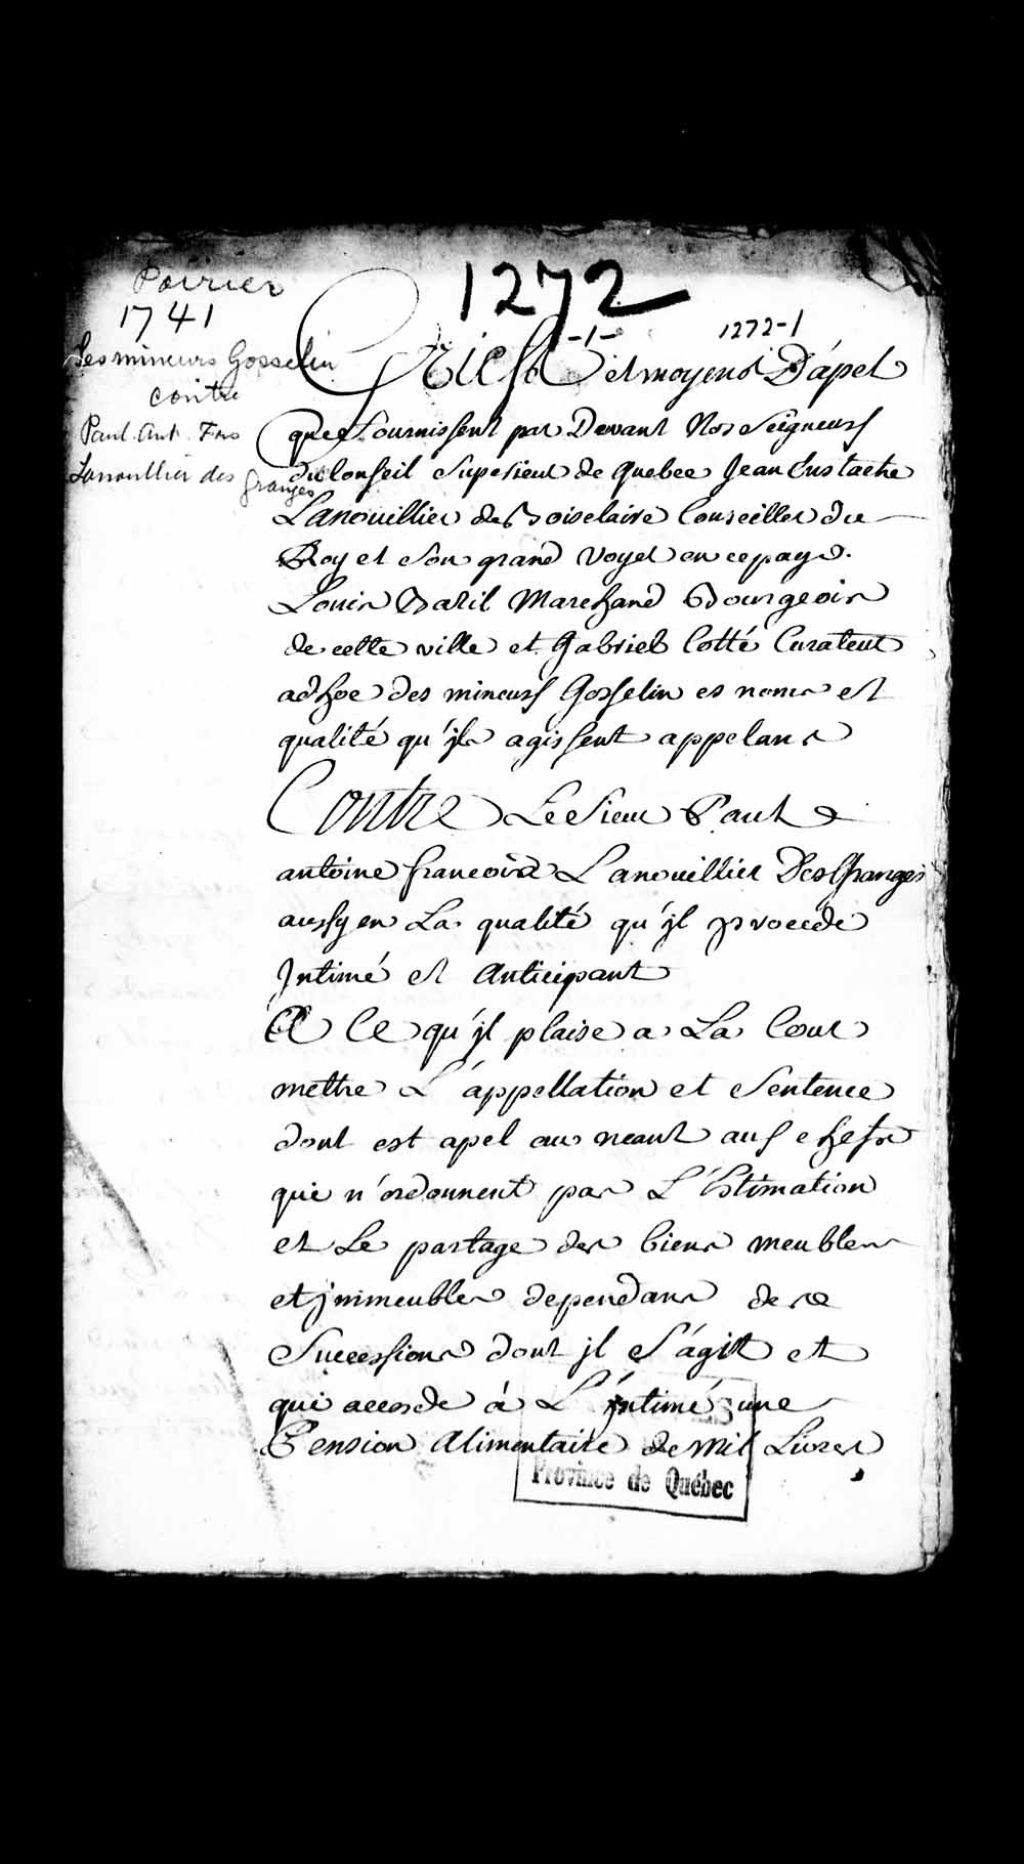 Poirier
1741
Les mineurs Gosselin
contre
Paul. Ant. Frs
Lanoullier des
Granges
1272
-1-
1272-1
Griefs et moyens D'ápel
que fournissent par Devant Nos Seigneurs
du Conseil Superieur de Quebec Jean Eustache
Lanouillier de Boisclaire Conseiller du
Roy et Son grand Voyer en ce pays.
Louis Bazil Marchand Bourgeois
de cette ville et Gabriel Cotté Curateur
adhoc des mineurs Gosselin es noms et
qualité qu'jls agissent appelans
Contre Le Sieur Paul
antoine francois Lanouillier Des Granges
aussy en La qualité qu'jl procede
Jntimé et Anticipant
A Ce qu'jl plaise a La Cour
mettre L'appellation et Sentence
dont est apel au neant aux chefs
qui n'ordonnent pas L'Estimation
et Le partage des biens meubles
et jmmeubles dependans de
Successions dont jl S'ágit et
qui accorde á L'jntimé une
Pension Alimentaire de mil Livres
Province de Québec